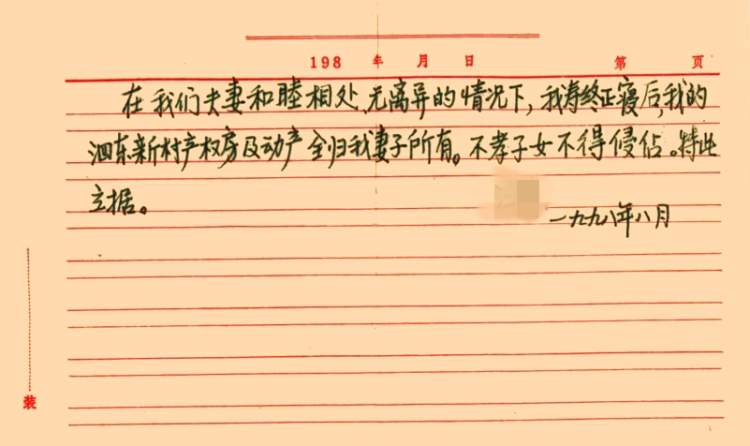 198 年 月 日 第 页
在我们夫妻和睦相处,无离异的情况下,我寿终正寝后,我的
泗东新村产权房及动产全归我妻子所有。不孝子女不得侵占。特此
立据。
一九九八年八月
装